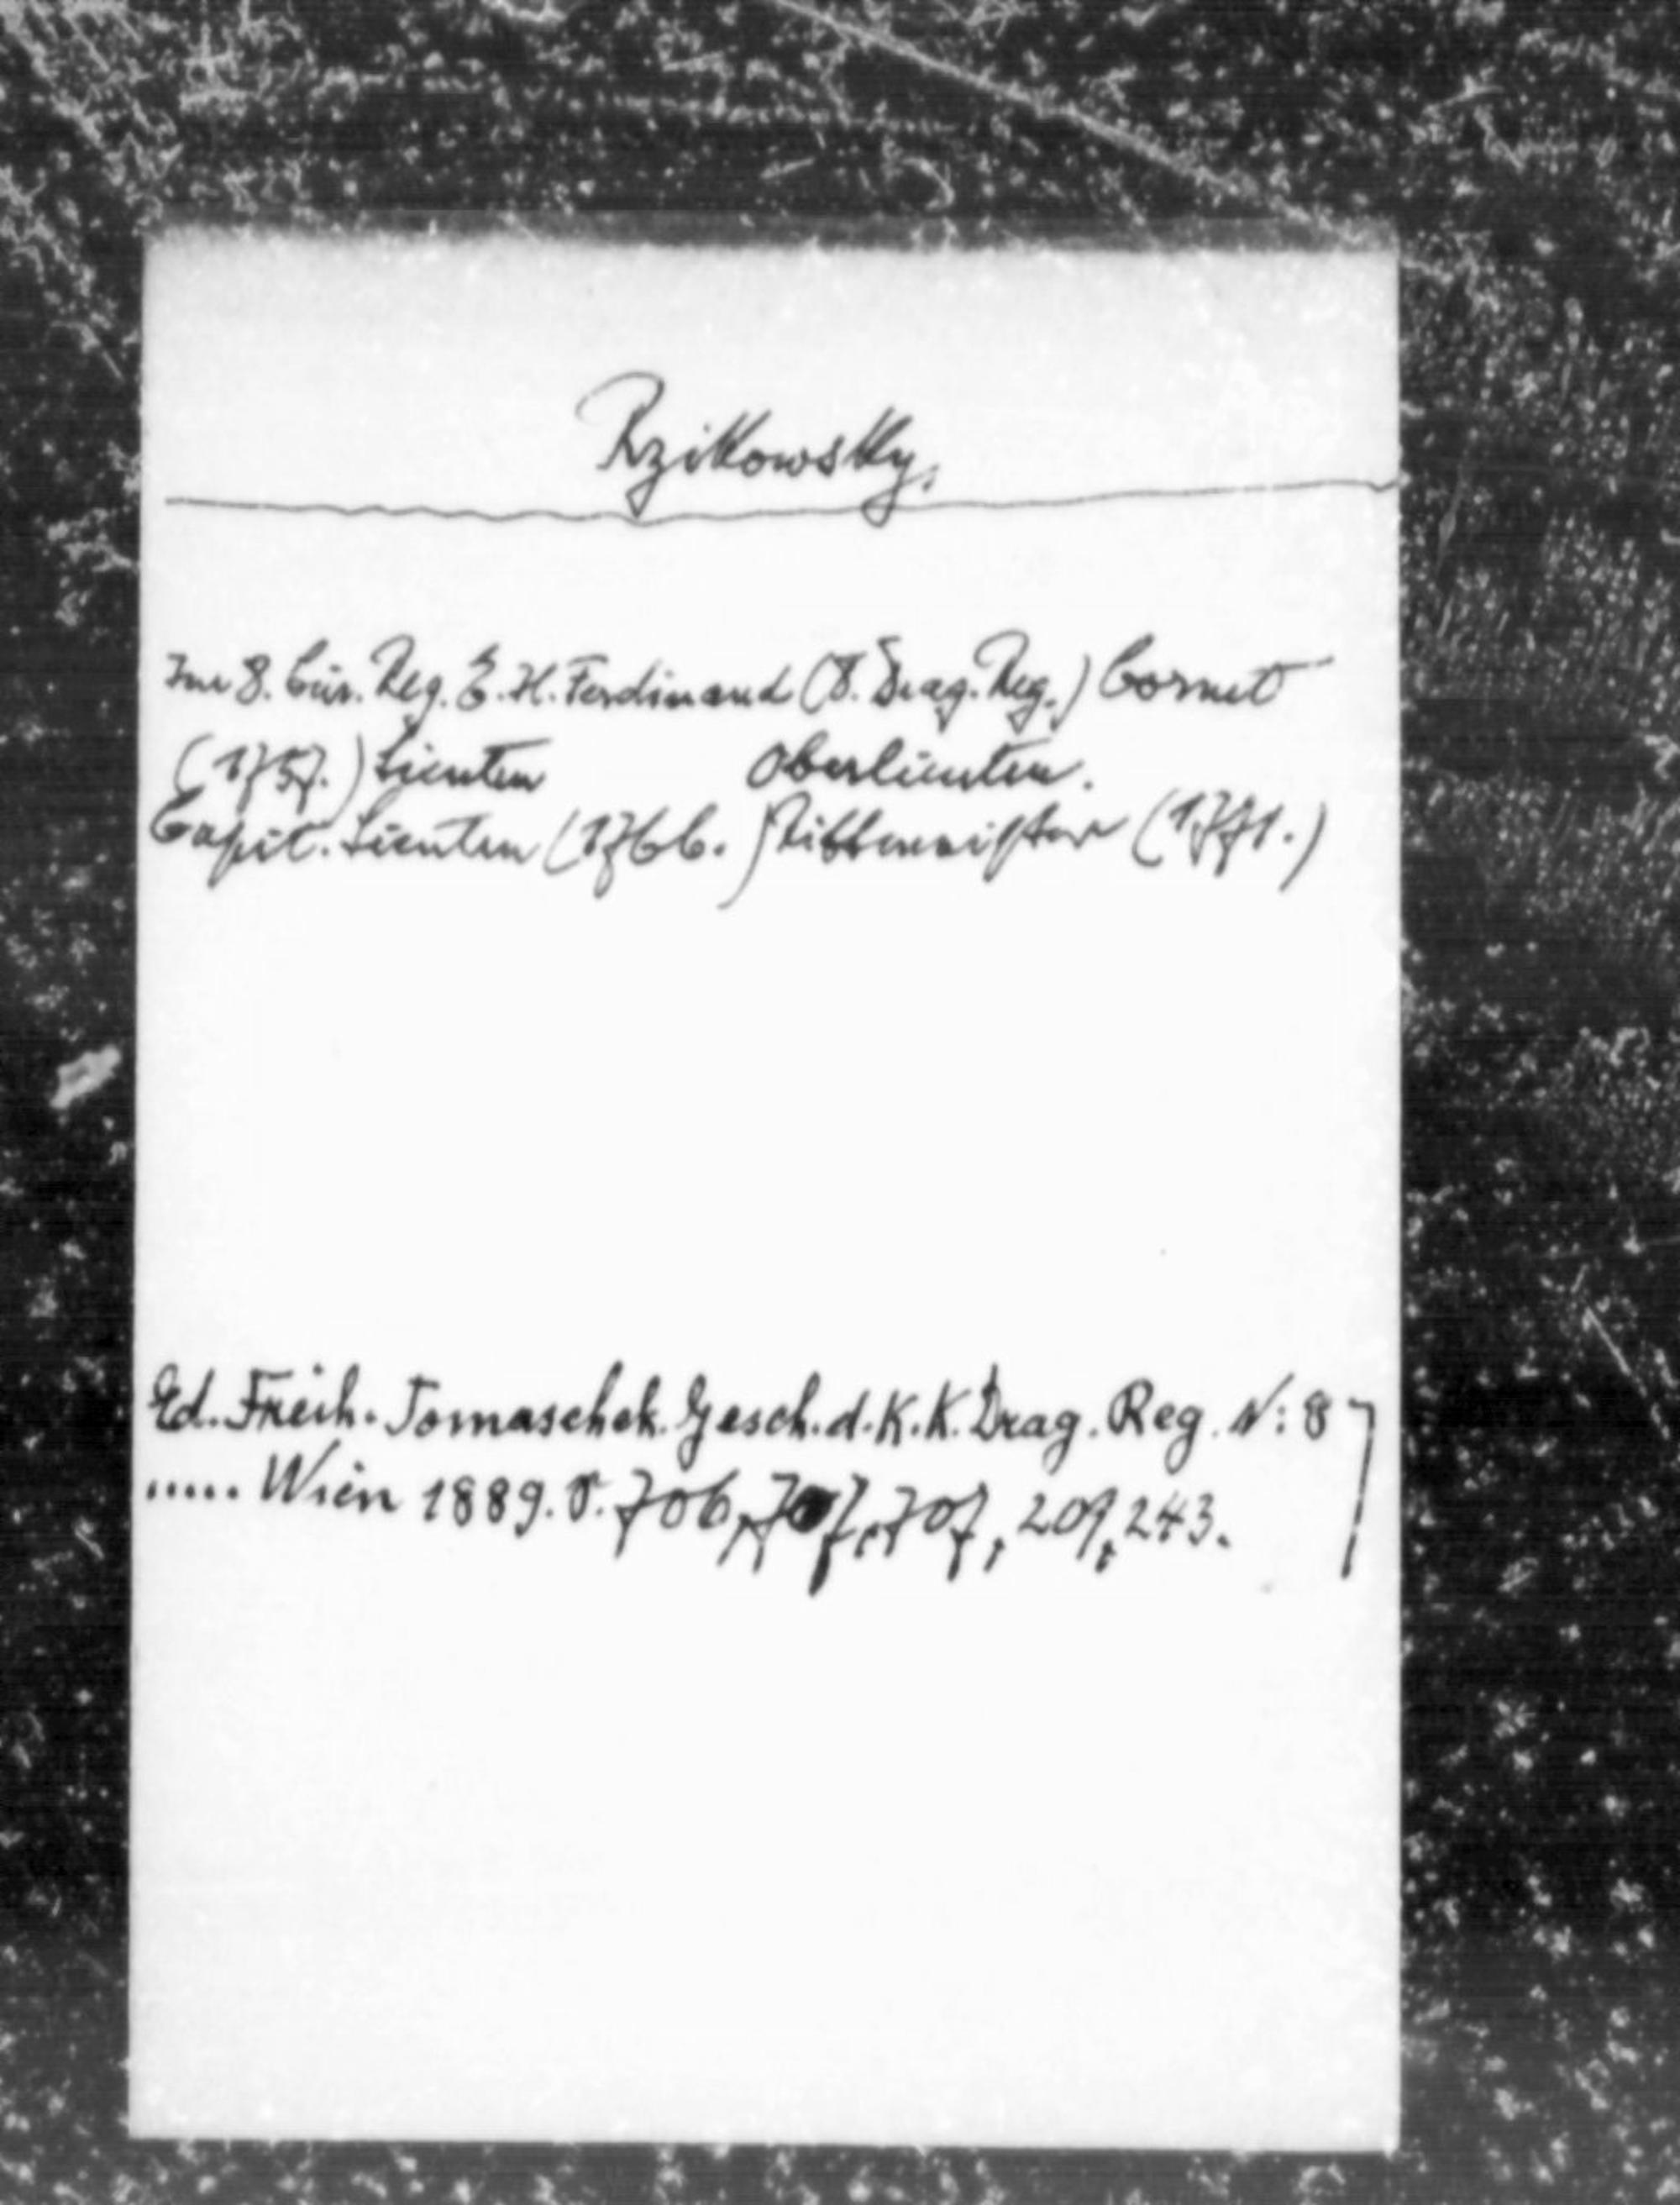 Rzikowsky.
Im 8. Cür. Reg. E. H. Ferdinand (8. Drag. Reg.) Cornet
(1757.) Lieuten Oberlieuten.
Capit. Lieuten (1766.) Rittmeister (1771.)
Ed. Freih. Tomaschek. Gesch. d. K. K. Drag. Reg. N: 8
..... Wien 1889. S. 706, 707, 707, 207, 243.